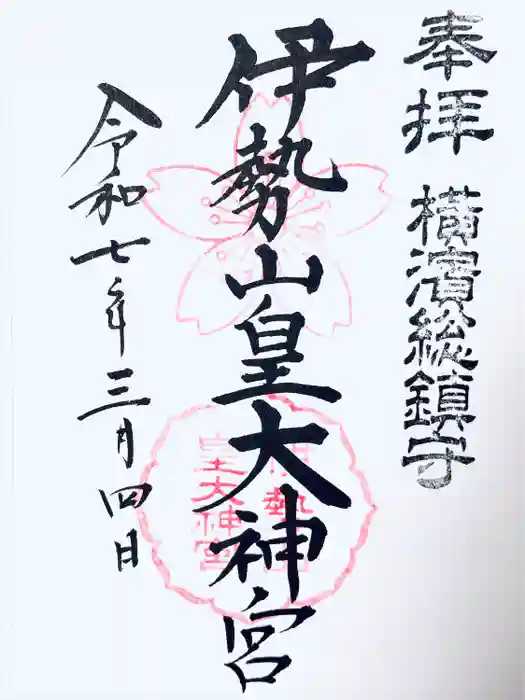 奉拝 横濱総鎮守
伊勢山皇大神宮
伊勢山
皇大神宮
令和七年三月四日